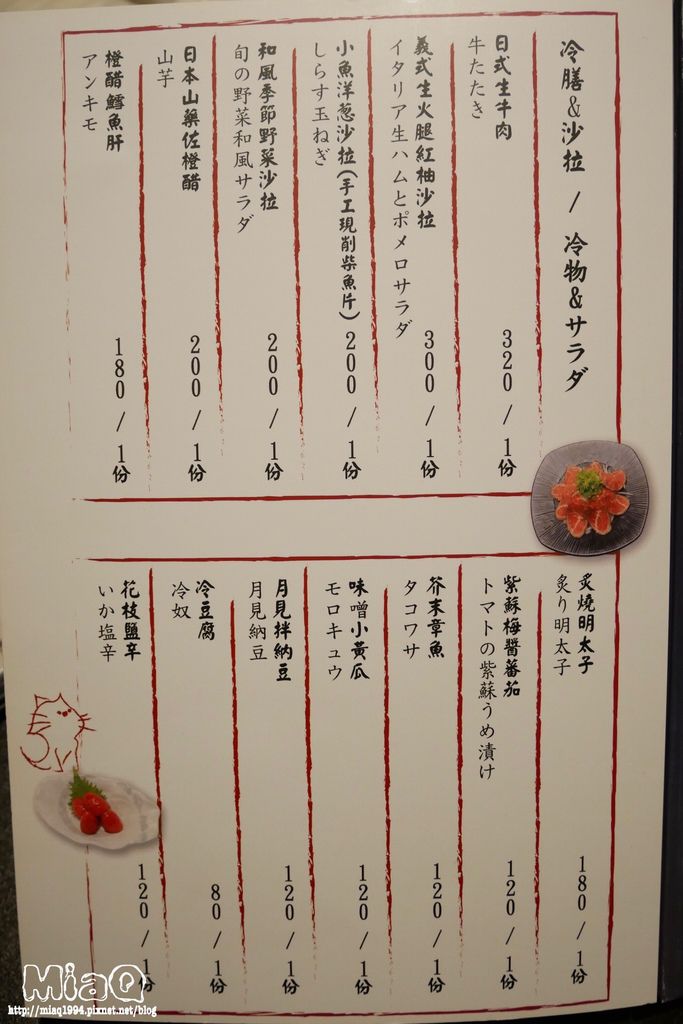 冷膳&沙拉 / 冷物&サラダ
日式生牛肉
牛たたき
320 / 1份
義式生火腿紅柚沙拉
イタリア生ハムとポメロサラダ
300 / 1份
小魚洋蔥沙拉(手工現削柴魚片)
しらす玉ねぎ
200 / 1份
和風季節野菜沙拉
旬の野菜和風サラダ
200 / 1份
日本山藥佐橙醋
山芋
200 / 1份
橙醋鱈魚肝
アンキモ
180 / 1份
炙燒明太子
炙り明太子
180 / 1份
紫蘇梅醬蕃茄
トマトの紫蘇うめ漬け
120 / 1份
芥末章魚
タコワサ
120 / 1份
味噌小黃瓜
モロキュウ
120 / 1份
月見拌納豆
月見納豆
120 / 1份
冷豆腐
冷奴
80 / 1份
花枝鹽辛
いか塩辛
120 / 1份
MiaQ
http://miaq1994.pixnet.net/blog